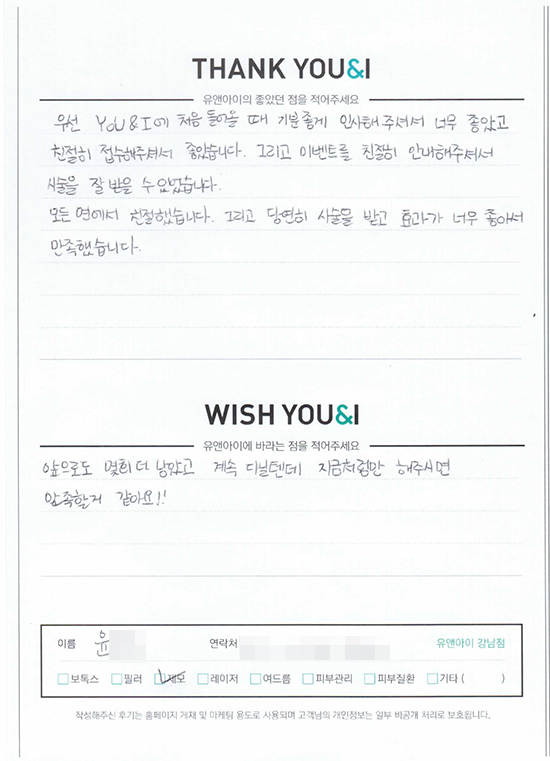 THANK YOU&I
유앤아이의 좋았던 점을 적어주세요
우선 YOU&I에 처음 들어올 때 기분좋게 인사해주셔서 너무 좋았고
친절히 접수해주셔서 좋았습니다. 그리고 이벤트를 친절히 안내해주셔서
시술을 잘 받을 수 있었습니다.
모든 면에서 친절했습니다. 그리고 당연히 시술을 받고 효과가 너무 좋아서
만족했습니다.
WISH YOU&I
유앤아이에 바라는 점을 적어주세요
앞으로도 몇회 더 남았고 계속 다닐텐데 지금처럼만 해주시면
만족할거 같아요!!
이름 윤 연락처 유앤아이 강남점
보톡스 필러 제모 레이저 여드름 피부관리 피부질환 기타 ( )
작성해주신 후기는 홈페이지 게재 및 마케팅 용도로 사용되며 고객님의 개인정보는 일부 비공개 처리로 보호됩니다.